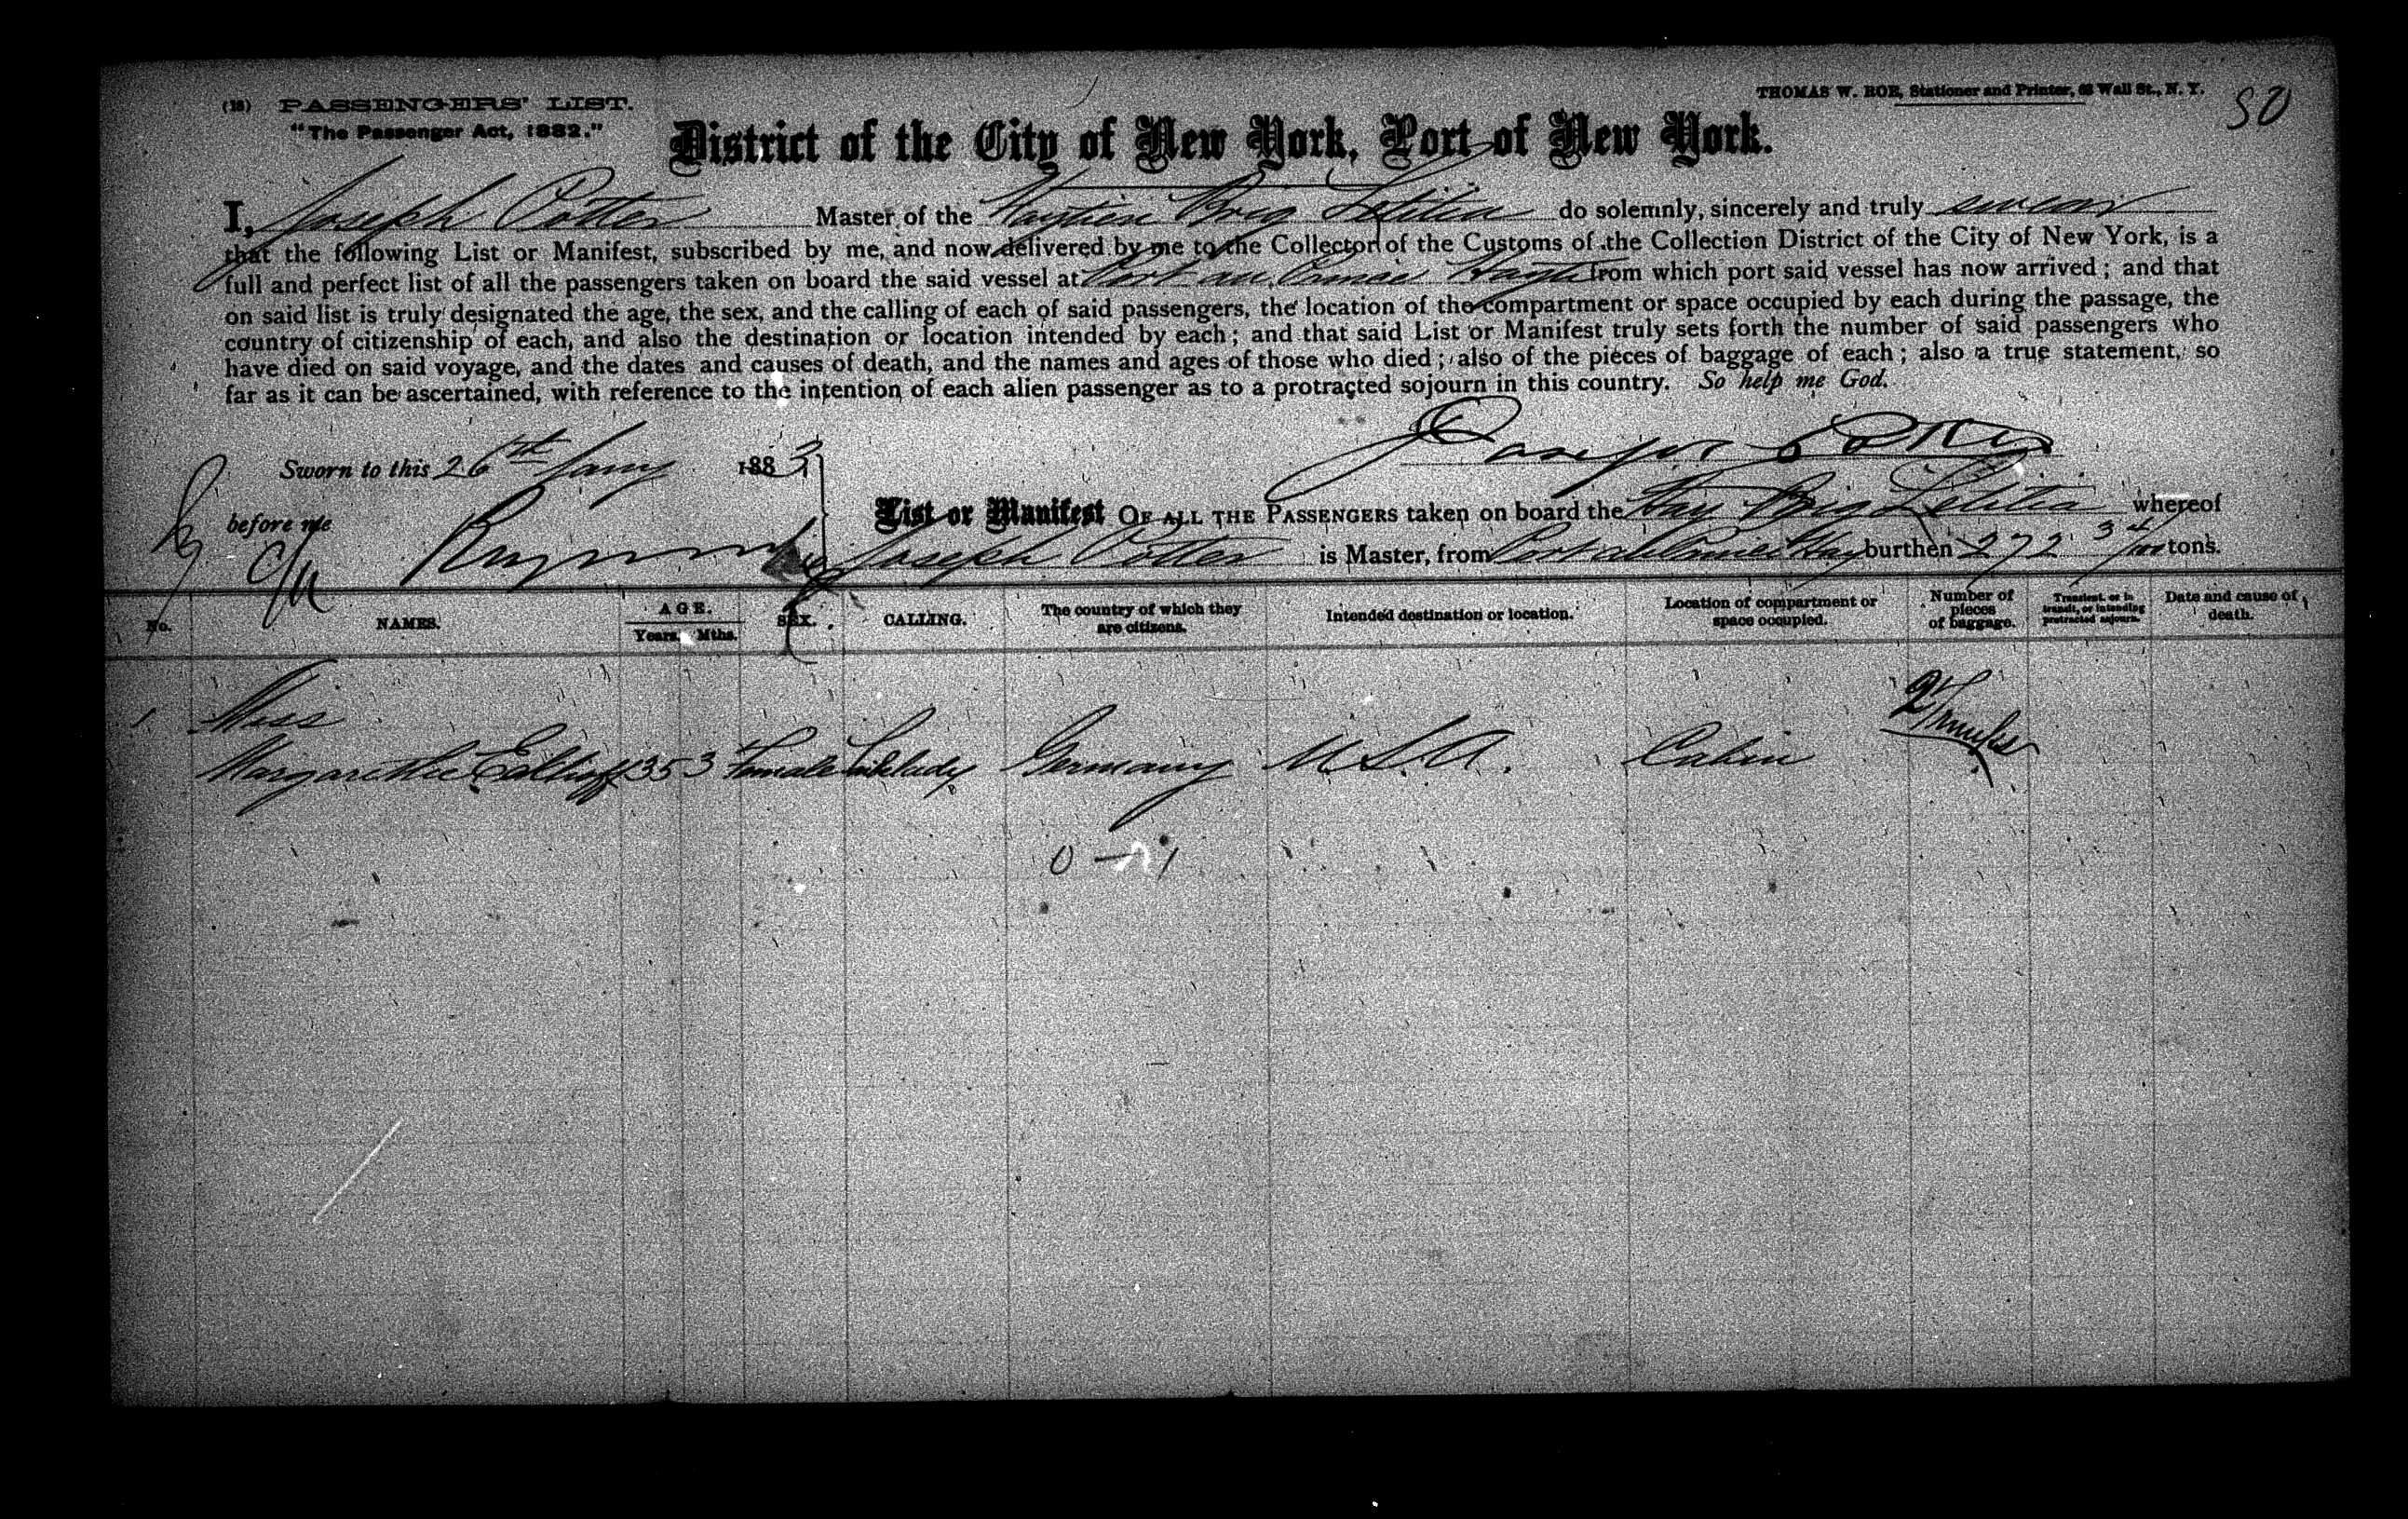 (18) PASSENGERS' LIST.
"The Passenger Act, 1882."
THOMAS W. ROE, Stationer and Printer, 63 Wall St., N. Y.
50
District of the City of New York, Port of New York.
I, Joseph Potter Master of the Haytien Brig Letitia do solemnly, sincerely and truly swear
that the following List or Manifest, subscribed by me, and now delivered by me to the Collector of the Customs of the Collection District of the City of New York, is a
full and perfect list of all the passengers taken on board the said vessel at Port au Prince Hayti from which port said vessel has now arrived; and that
on said list is truly designated the age, the sex, and the calling of each of said passengers, the location of the compartment or space occupied by each during the passage, the
country of citizenship of each, and also the destination or location intended by each; and that said List or Manifest truly sets forth the number of said passengers who
have died on said voyage, and the dates and causes of death, and the names and ages of those who died; also of the pieces of baggage of each; also a true statement, so
far as it can be ascertained, with reference to the intention of each alien passenger as to a protracted sojourn in this country. So help me God.
Joseph Potter
Sworn to this 26th Jany 1883
before me
List or Manifest OF ALL THE PASSENGERS taken on board the Hay Brig Letitia whereof
Joseph Potter is Master, from Port au Prince Hay burthen 272 34/100 tons.
No. NAMES. AGE. Years. Mths. SEX. CALLING. The country of which they are citizens. Intended destination or location. Location of compartment or space occupied. Number of pieces of baggage. Transient, or in transit, or intending protracted sojourn. Date and cause of death.
1 Miss
Margarethe 35 3 Female Germany U.S.A. Cabin 2 Trunks
0 – 1